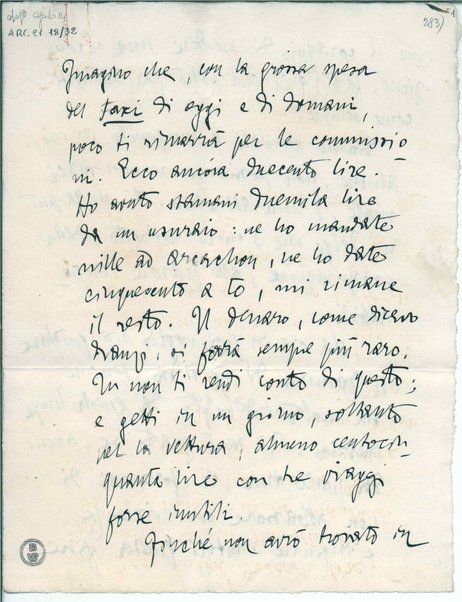 ARC. 21. 18/32
283)
Imagino che, con la grossa spesa
del taxi di oggi e di domani,
poco ti rimarrà per le commissio
ni. Ecco ancora duecento lire. –
Ho avuto stamani duemila lire
da un usuraio: ne ho mandate
mille ad Arcachon, ne ho date
cinquecento a te, mi rimane
il resto. Il denaro, come dicevo
dianzi, si farà sempre più raro.
Tu non ti rendi conto di questo;
e getti in un giorno, soltanto
per la vettura, almeno centocin
quanta lire con tre viaggi
forse inutili.
Finché non avrò trovato un